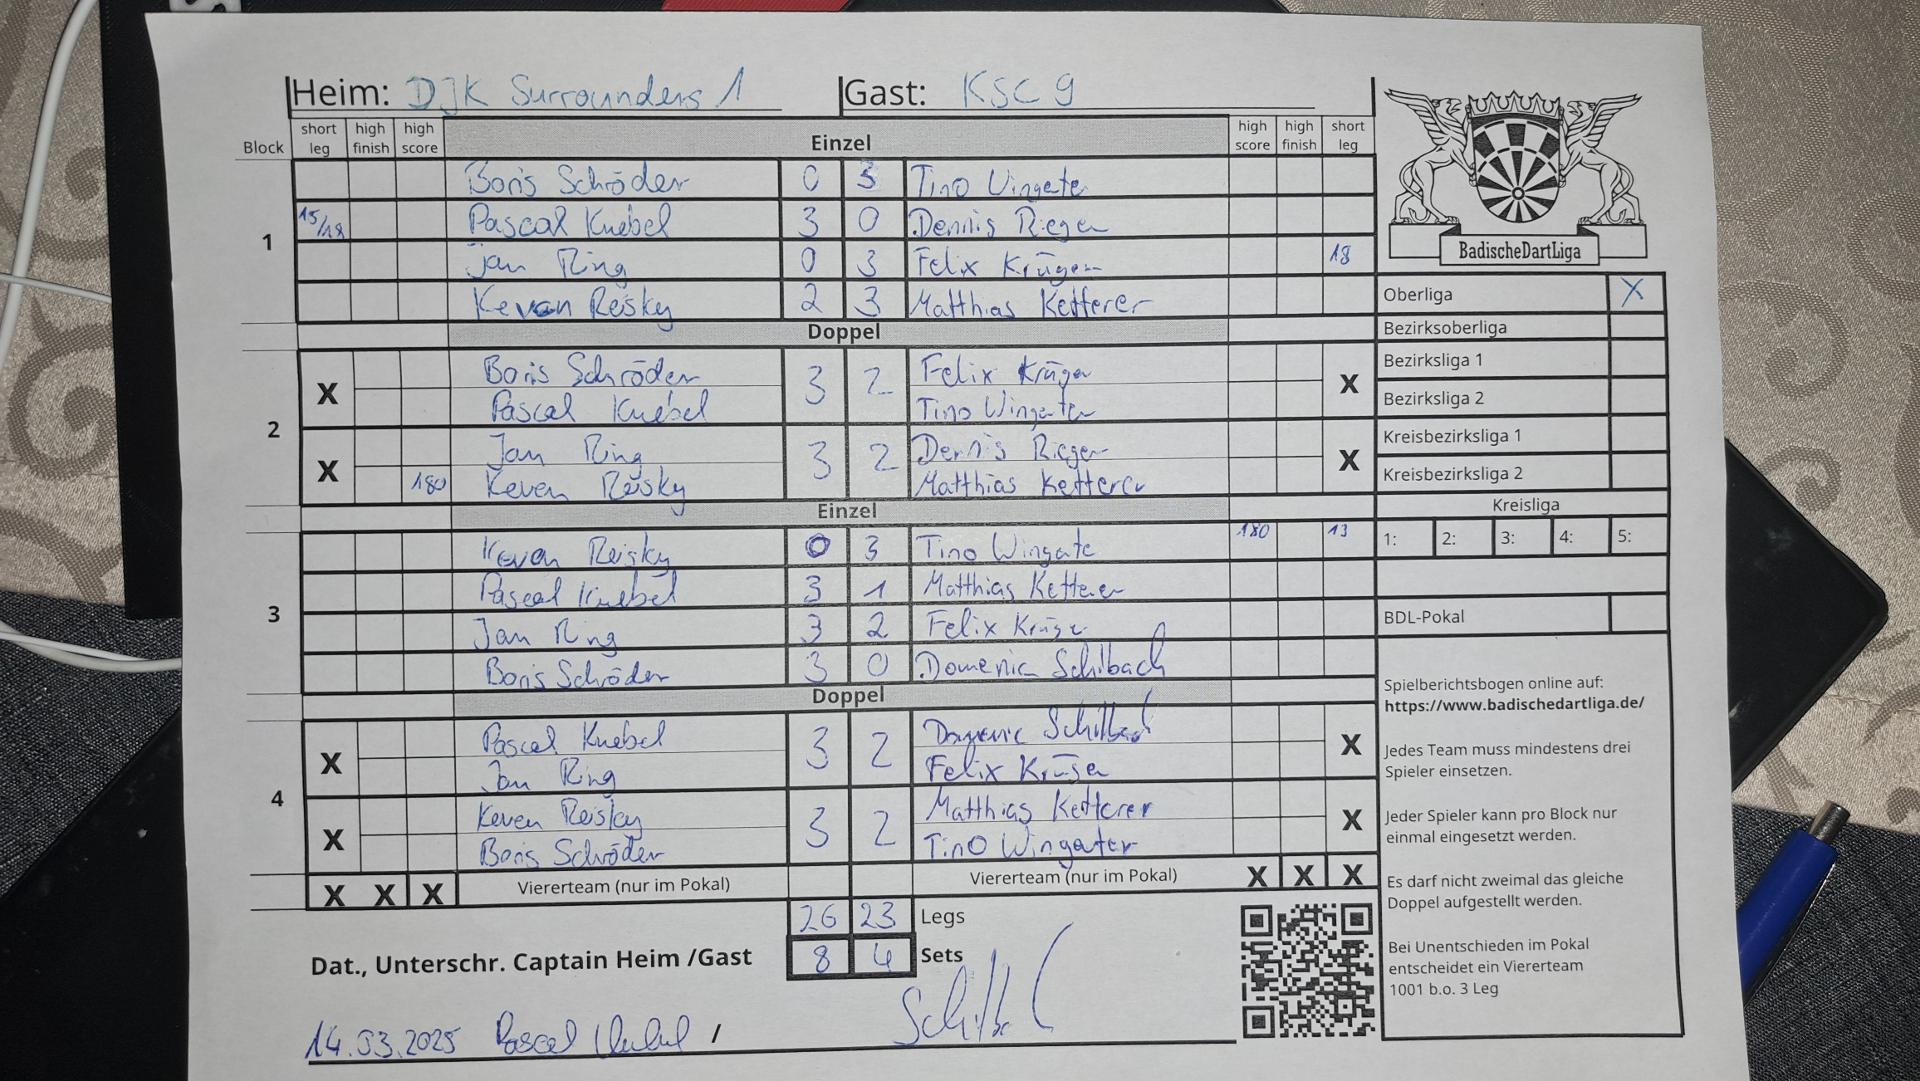 Heim: DJK Surrounders 1 Gast: KSC 9
Block short leg high finish high score Einzel high score high finish short leg
1
Boris Schröder 0 3 Tino Wingate
15/18 Pascal Knebel 3 0 Dennis Rieger
Jan Ring 0 3 Felix Krüger 18
Keven Reisky 2 3 Matthias Ketterer
Doppel
2
X Boris Schröder 3 2 Felix Krüger X
Pascal Knebel Tino Wingate
X Jan Ring 3 2 Dennis Rieger X
180 Keven Reisky Matthias Ketterer
Einzel
3
Keven Reisky 0 3 Tino Wingate 180 13
Pascal Knebel 3 1 Matthias Ketterer
Jan Ring 3 2 Felix Krüger
Boris Schröder 3 0 Domenic Schilbach
Doppel
4
X Pascal Knebel 3 2 Domenic Schilbach X
Jan Ring Felix Krüger
X Keven Reisky 3 2 Matthias Ketterer X
Boris Schröder Tino Wingate
X X X Viererteam (nur im Pokal) Viererteam (nur im Pokal) X X X
26 23 Legs
Dat., Unterschr. Captain Heim /Gast 8 4 Sets
14.03.2025 Pascal Knebel /
BadischeDartLiga
Oberliga X
Bezirksoberliga
Bezirksliga 1
Bezirksliga 2
Kreisbezirksliga 1
Kreisbezirksliga 2
Kreisliga
1: 2: 3: 4: 5:
BDL-Pokal
Spielberichtsbogen online auf:
https://www.badischedartliga.de/
Jedes Team muss mindestens drei
Spieler einsetzen.
Jeder Spieler kann pro Block nur
einmal eingesetzt werden.
Es darf nicht zweimal das gleiche
Doppel aufgestellt werden.
Bei Unentschieden im Pokal
entscheidet ein Viererteam
1001 b.o. 3 Leg